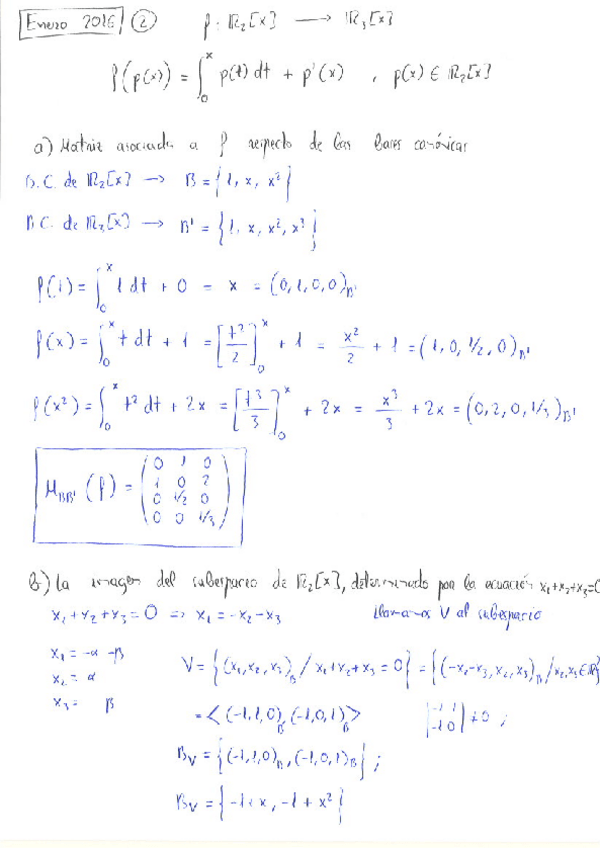 Enero 2016 ② f: ℝ₂[x] → ℝ₃[x]
f(p(x)) = ∫₀ˣ p(t) dt + p'(x) , p(x) ∈ ℝ₂[x]
a) Matriz asociada a f respecto de las bases canónicas
B.C. de ℝ₂[x] → B = {1, x, x²}
B.C. de ℝ₃[x] → B' = {1, x, x², x³}
f(1) = ∫₀ˣ 1 dt + 0 = x = (0,1,0,0)_B'
f(x) = ∫₀ˣ t dt + 1 = [t²/2]₀ˣ + 1 = x²/2 + 1 = (1, 0, 1/2, 0)_B'
f(x²) = ∫₀ˣ t² dt + 2x = [t³/3]₀ˣ + 2x = x³/3 + 2x = (0, 2, 0, 1/3)_B'
M_BB' (f) =
0 1 0
1 0 2
0 1/2 0
0 0 1/3
b) La imagen del subespacio de ℝ₂[x], determinado por la ecuación x₁+x₂+x₃=0
x₁+x₂+x₃=0 ⇒ x₁ = -x₂-x₃ Llamamos V al subespacio
x₁ = -α -β
x₂ = α
x₃ = β
V = {(x₁,x₂,x₃)_B / x₁+x₂+x₃=0} = {(-x₂-x₃, x₂, x₃)_B / x₂,x₃∈ℝ}
= <(-1,1,0)_B, (-1,0,1)_B> |-1 1 / -1 0| ≠ 0 ;
B_V = {(-1,1,0)_B, (-1,0,1)_B} ;
B_V = {-1+x, -1+x²}